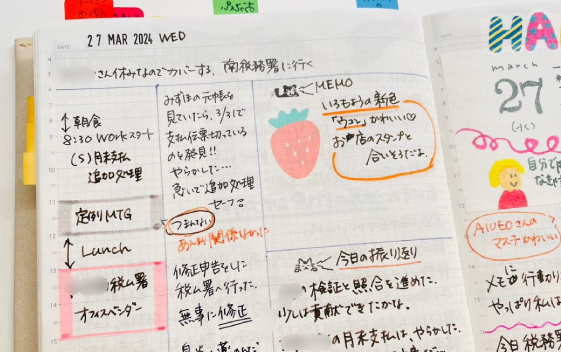 27 MAR 2024 WED
さん休みなのでカバーする。南税務署に行く
朝食
8:30 WORKスタート
(S)月末支払
追加処理
定例MTG
Lunch
税ム署
オフィスベンダー
みずほの元帳を
見ていたら、3/31で
支払伝票切っている
のを発見!!
やらかした…
急いで追加処理
セーフ
つまんない
あんまり関係なかった
修正申告をした
税ム署へ行った。
無事に修正
MEMO
いろもようの新色
かわいい♡
お店のスタンプと
合いそうだよ
今日の振り返り
検証と照合を進めた。
少しは貢献できたかな。
の月末支払は、やらかした。
march
27
(水)
自分で
AIUEOさんの
マステかわいい
メモに行動
やっぱり私は
今日 税務